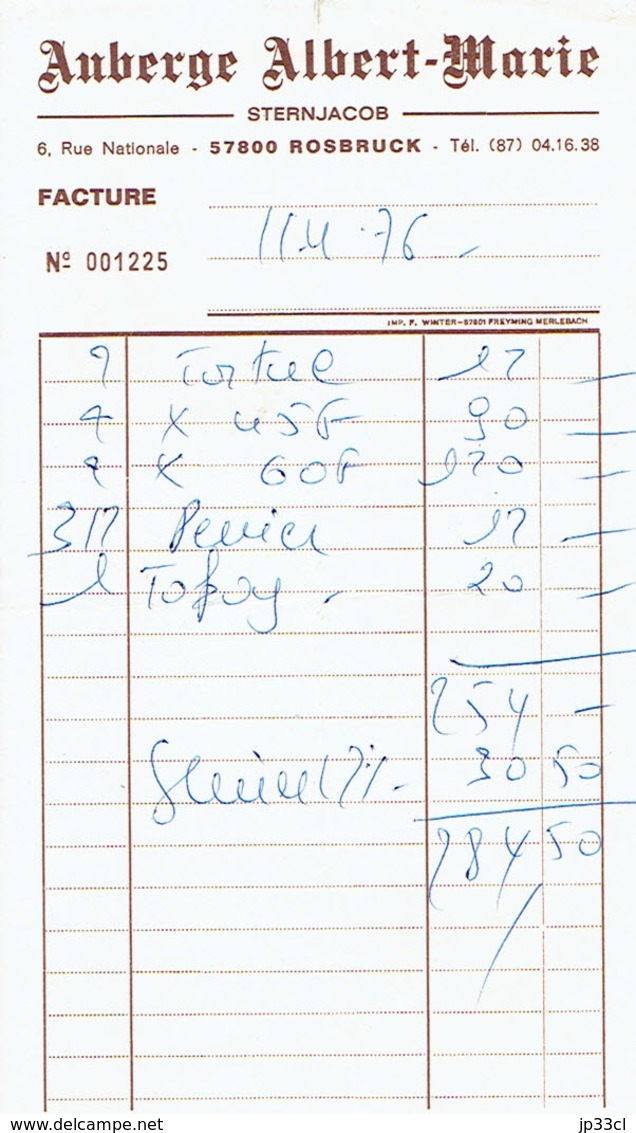 Auberge Albert-Marie
STERNJACOB
6, Rue Nationale - 57800 ROSBRUCK - Tél. (87) 04.16.38
FACTURE
11.4.76
Nº 001225
IMP. F. WINTER-57801 FREYMING MERLEBACH
2 17 -
2 X 45F 90 -
2 X 60F 120 -
3/2 Perrier 12 -
1 Tokay - 20 -
254 -
Service 12% - 30 50
284 50
delcampe.net
jp33cl